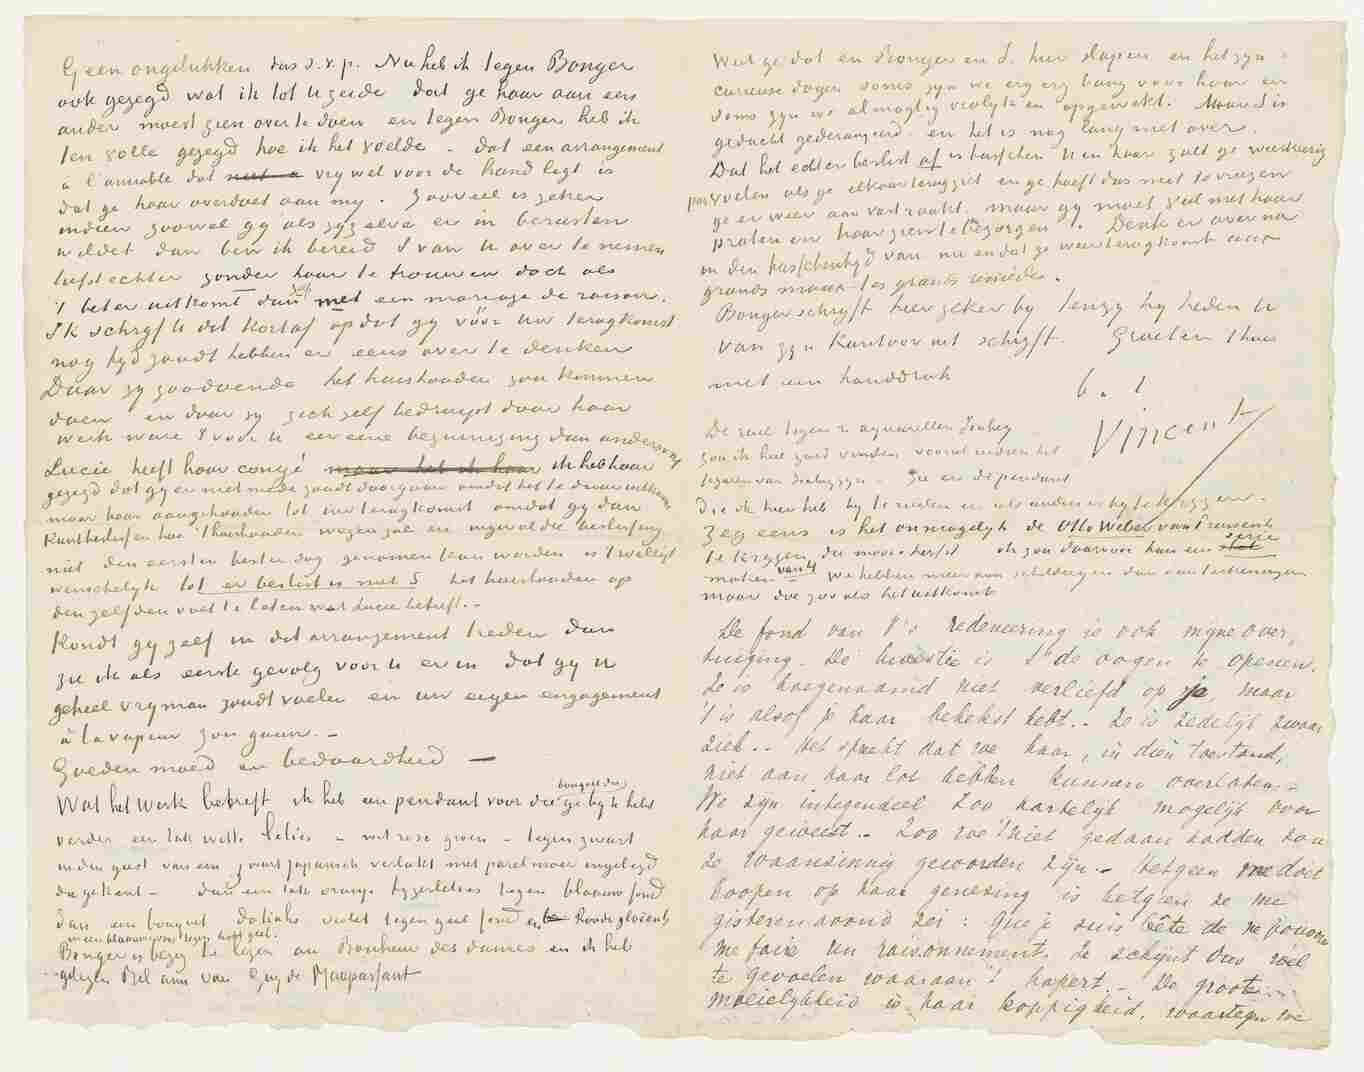 Geen ongelukken dus s.v.p. Nu heb ik tegen Bonger
ook gezegd wat ik tot U zeide dat ge haar aan een
ander moest zien over te doen en tegen Bonger heb ik
ten volle gezegd hoe ik het voelde. dat een arrangement
à l'amiable dat vrij wel voor de hand legt is
dat ge haar overdoet aan mij. Zooveel is zeker
indien zoowel gij als zij zelve er in berusten
wildet dan ben ik bereid S van U over te nemen
liefst echter zonder haar te trouwen doch als
't beter uitkomt dan zelfs met een mariage de raison.
Ik schrijf U dit kortaf opdat gij vóór uw terugkomst
nog tijd zoudt hebben er eens over te denken
Daar zij zoodoende het huishouden zou kunnen
doen en daar zij zich zelf bedruipt door haar
werk ware S voor U eer eene bezuiniging dan anderszins
Lucie heeft haar congé maar heb ik haar ik heb haar
gezegd dat gij er niet mede zoudt doorgaan omdat het te duur uitkomt
maar haar aangehouden tot uw terugkomst omdat gij dan
kunt beslissen hoe 't huishouden wezen zal en ingeval die beslissing
niet den eersten besten dag genomen kan worden is 't wellicht
wenschelijk tot er beslist is met S het huishouden op
den zelfden voet te laten wat Lucie betreft.-
Kondt gij zelf in dit arrangement treden dan
zie ik als eerste gevolg voor U er in dat gij U
geheel vrij man zoudt voelen en uw eigen engagement
à la vapeur zou gaan.-
Goeden moed en bedaardheid —
Wat het werk betreft ik heb een pendant voor die bouquet die ge bij te hebt
verder een tak witte lelies - wit rose groen - tegen zwart
in den geest van een zwart japansch verlakt met parelmoer ingelegd
die ge kent - dan een tak oranje tijgerlelies tegen blaauw fond
dan een bouquet dahlias violet tegen geel fond en roode glaieuls
in een blaauwe vaas tegen licht geel.
Bonger is bezig te lezen au Bonheur des dames en ik heb
gelezen Bel ami van Guy de Maupassant
Weet ge dat en Bonger en S. hier slapen en het zijn
curieuse dagen soms zijn we erg erg bang voor haar en
soms zijn we almagtig vrolijk en opgewekt. Maar S is
gedacht gederangeerd en het is nog lang niet over.
Dat het echter beslist af is tusschen U en haar zult ge weerskanten
voelen als ge elkaar terugziet en ge hoeft dus niet te vreezen
ge er weer aan vast raakt. maar gij moet veel met haar
praten en haar zien te bezorgen. Denk er over na
in den tusschentijd van nu en dat ge weer terugkomt aux
grands maux les grands remèdes.
Bonger schrijft hier zeker bij tenzij hij heden U
van zijn kantoor uit schrijft. Groeten thuis
met een handdruk
b. t
Vincent
De ruil tegen 2 aquarellen Isabey
zou ik heel goed vinden vooral indien het
figuren van Isabey zijn. Zie er de pendant
die ik hier heb bij te ruilen en iets anders er bij te krijgen.
Zeg eens is het onmogelijk de Otto Weber van Tersteeg
te krijgen die mooie herfst ik zou daarvoor hem een serie
maken van 4 we hebben meer aan schilderijen dan aan teekeningen
maar doe zoo als het uitkomt
De fond van V's redeneering is ook mijne over-
tuiging. De kwestie is S de oogen te openen.
Ze is hoegenaamd niet verliefd op je maar
't is alsof je haar behekst hebt.. Ze is zedelijk zwaar
ziek.. Het spreekt dat we haar, in dien toestand,
niet aan haar lot hebben kunnen overlaten.-
We zijn integendeel zoo hartelijk mogelijk voor
haar geweest.- Zoo we 't niet gedaan hadden zou
ze waanzinnig geworden zijn.- Hetgeen me doet
hoopen op haar genezing is hetgeen ze me
gisteren avond zei: Que je suis bête de ne pouvoir
me faire un raisonnement. Ze schijnt dus wel
te gevoelen waaraan 't hapert.- De groote
moeielijkheid is haar koppigheid, waartegen we